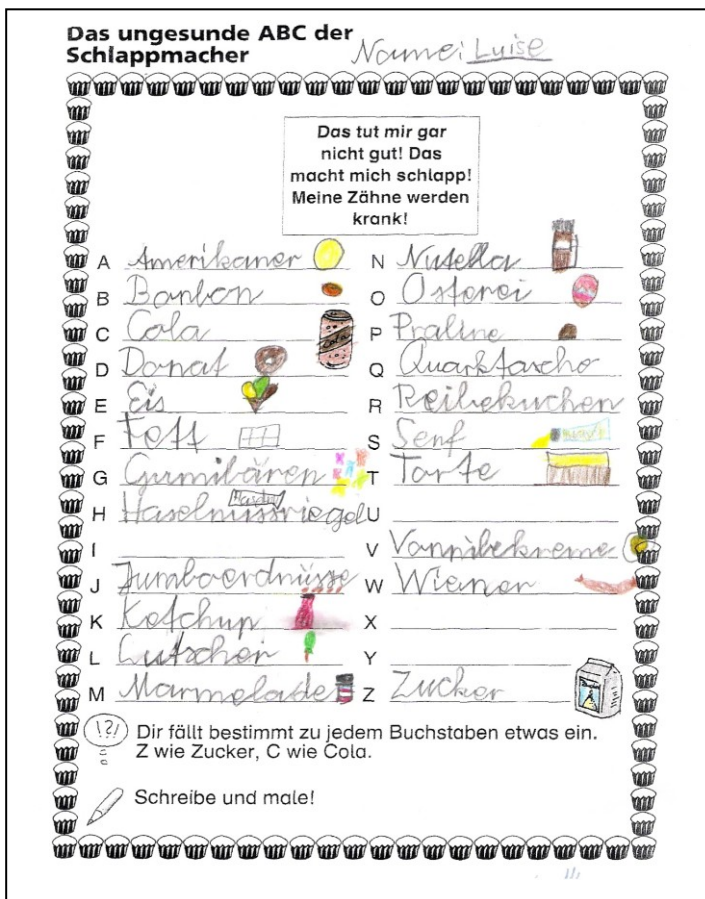 Das ungesunde ABC der
Schlappmacher
Name: Luise
Das tut mir gar
nicht gut! Das
macht mich schlapp!
Meine Zähne werden
krank!
A Amerikaner
B Bonbon
C Cola
D Donat
E Eis
F Fett
G Gumibären
H Haselnussriegel
I
J Jumboerdnüsse
K Ketchup
L Lutscher
M Marmelade
N Nutella
O Osterei
P Praline
Q Quarktasche
R Reibekuchen
S Senf
T Torte
U
V Vannilekreme
W Wiener
X
Y
Z Zucker
!?!
Dir fällt bestimmt zu jedem Buchstaben etwas ein.
Z wie Zucker, C wie Cola.
Schreibe und male!